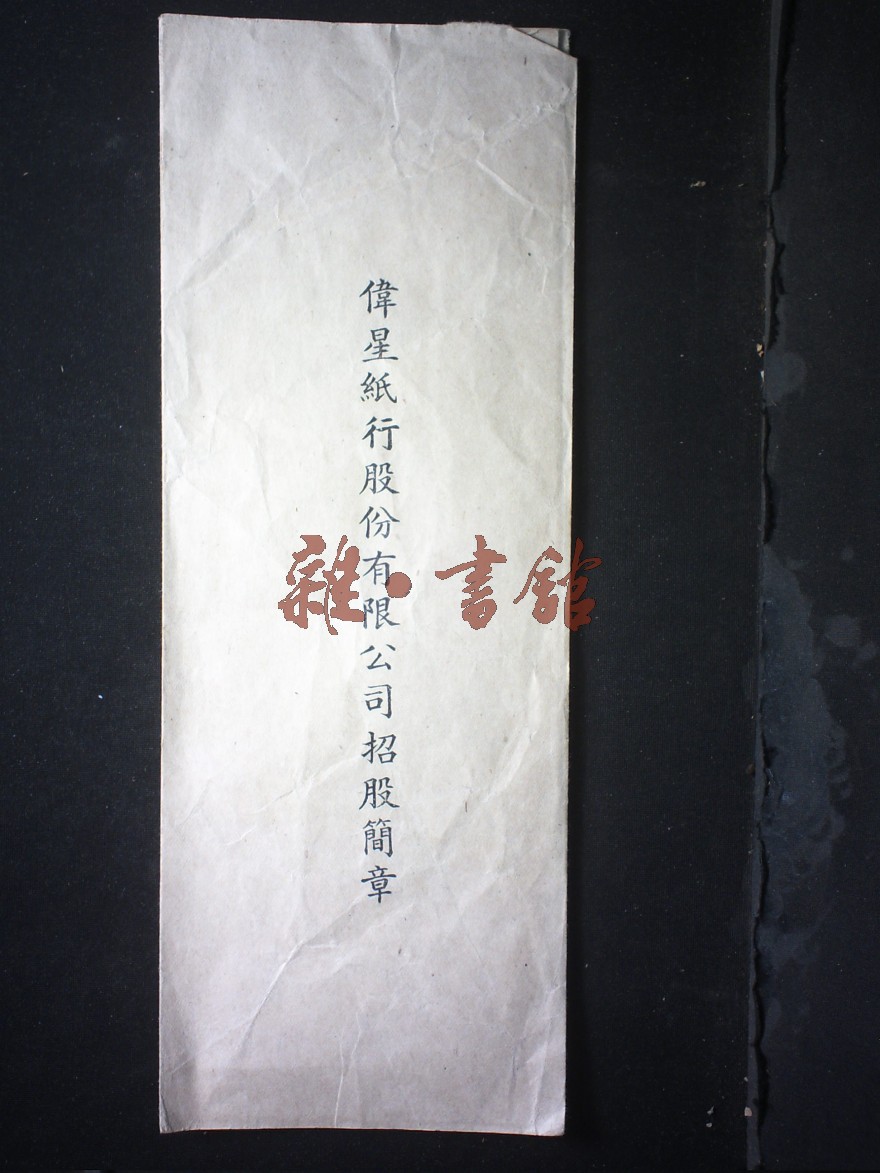 偉星紙行股份有限公司招股簡章
雜·書館